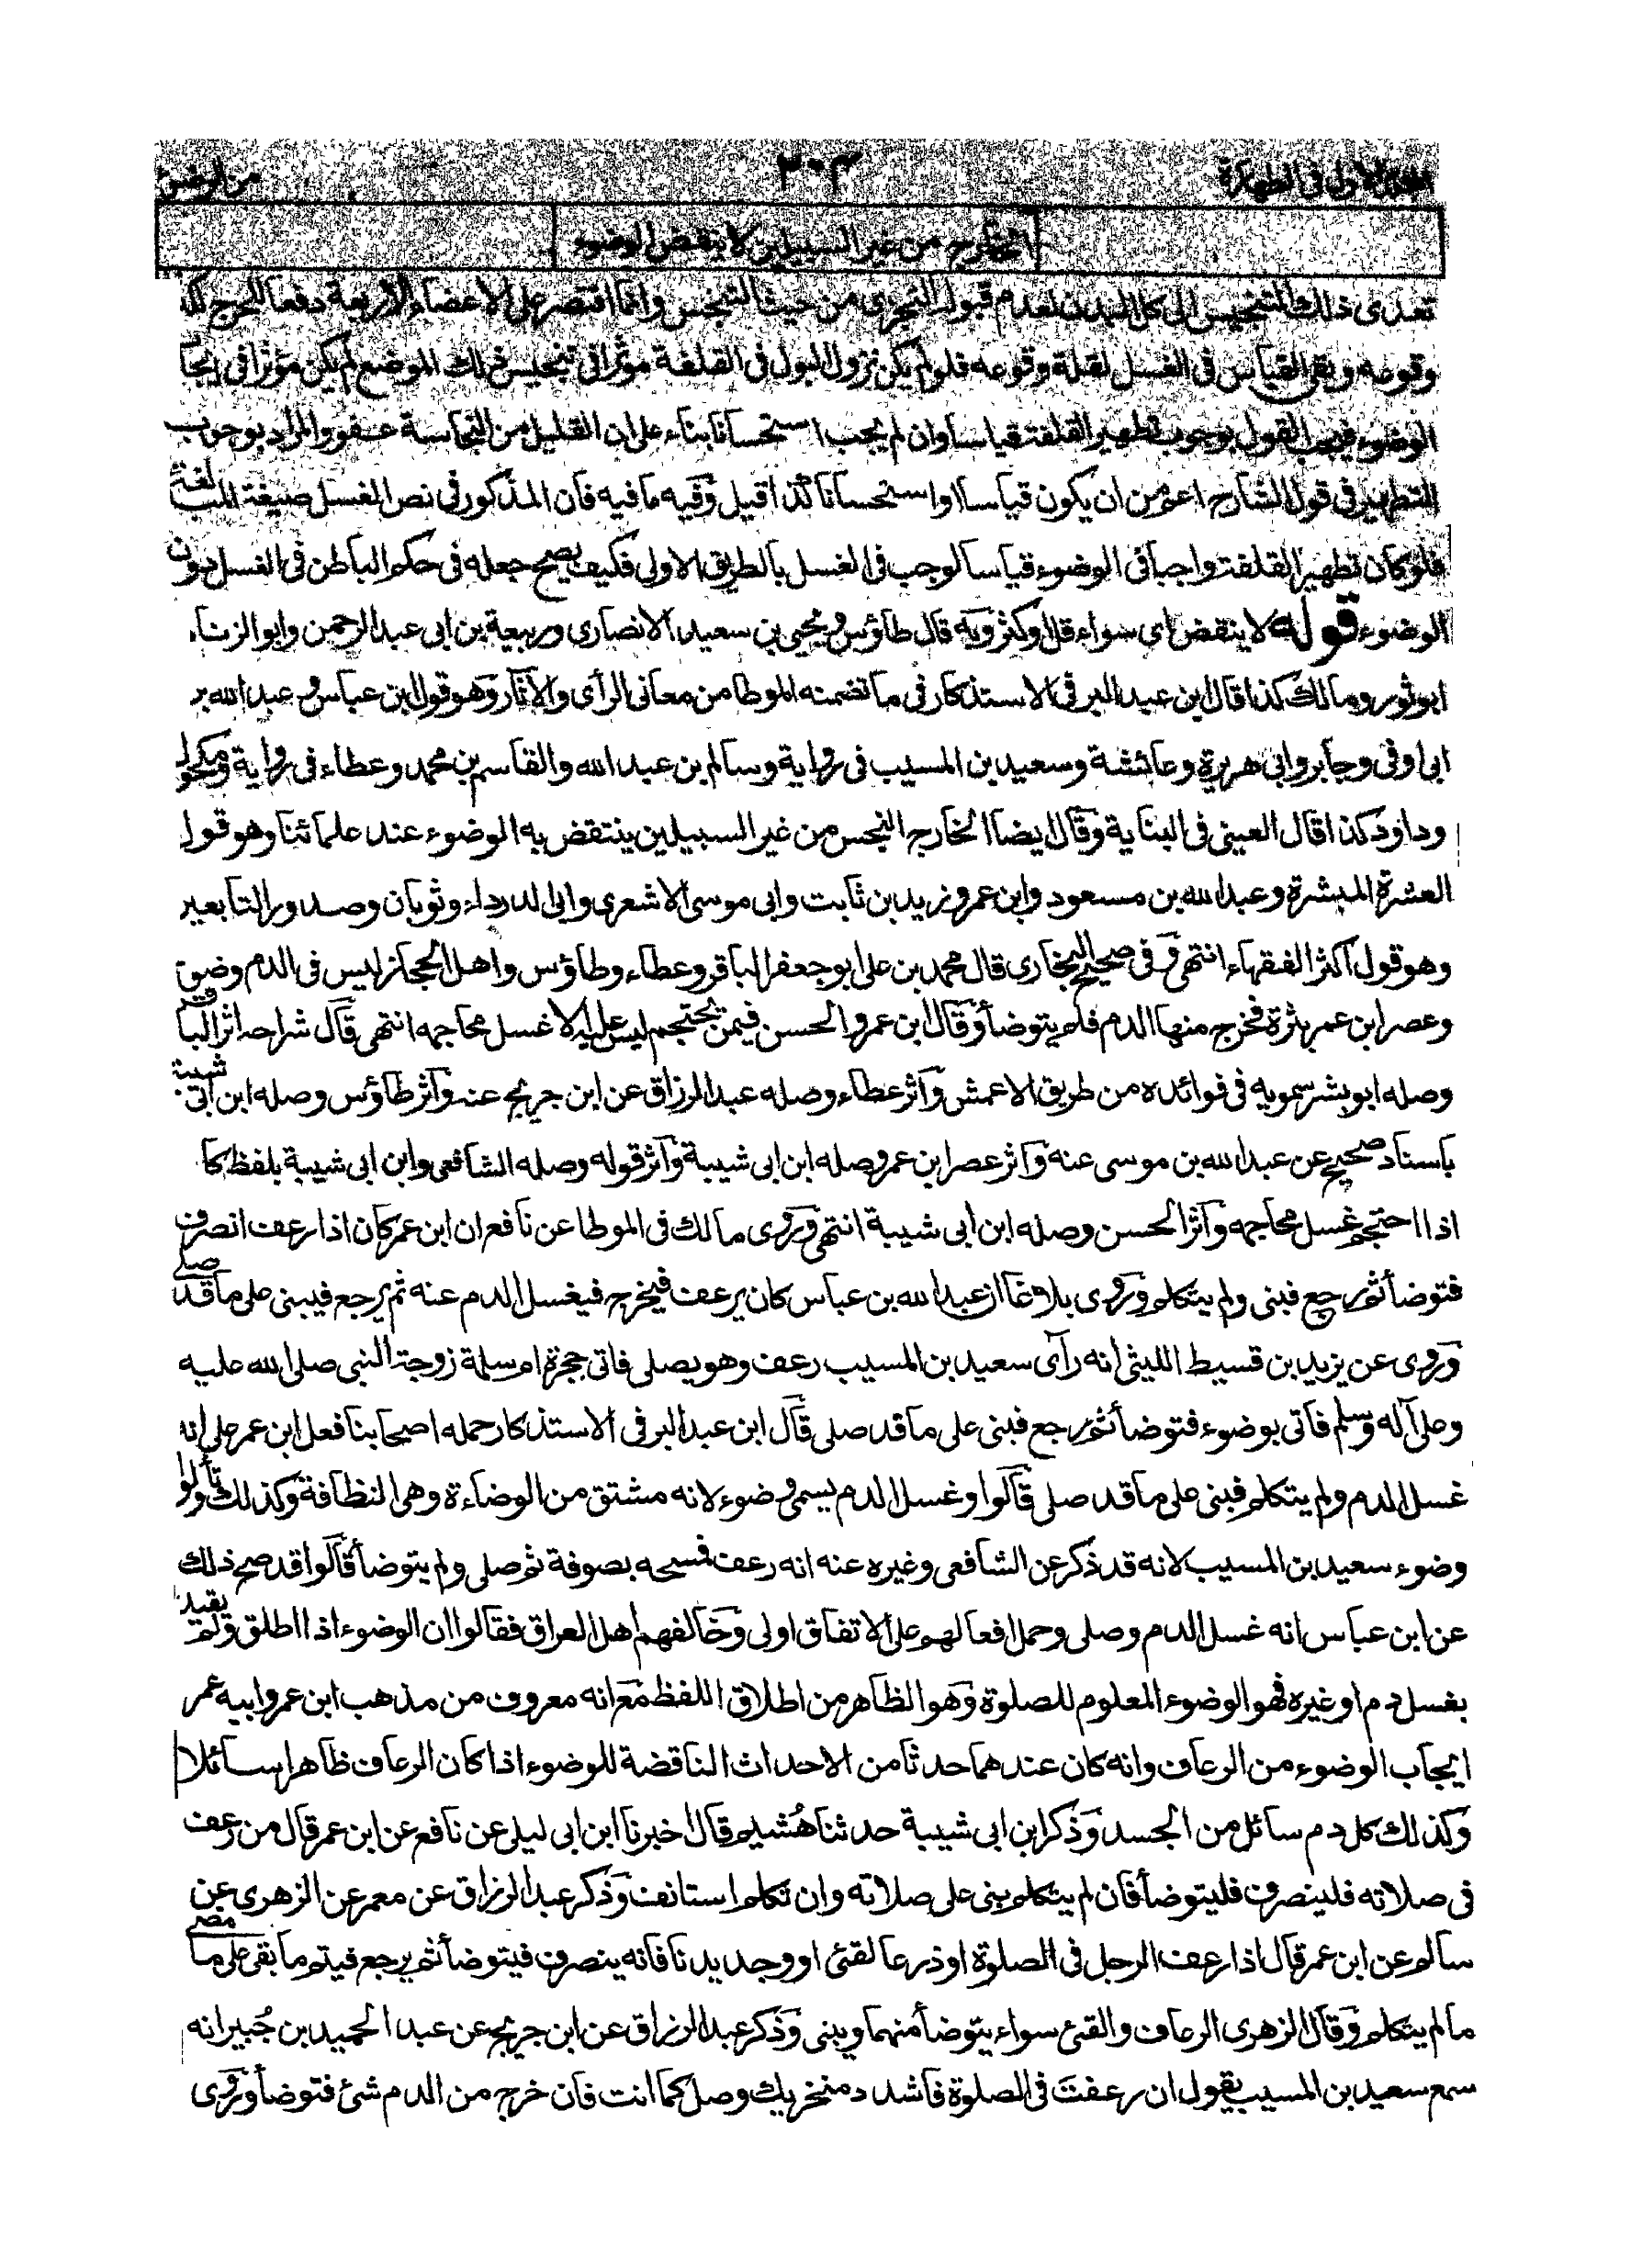 المجلد الاول فى الطهارة ٣٠٣ من الوضوء
الخارج من غير السبيلين لا ينقض الوضوء
تعدى ذلك التنجيس الى كل البدن لعدم قبول التجزى من حيث التنجس وانما اقتصر على الاعضاء الاربعة دفعا للحرج لكثرة
وقوعه وبقى القياس فى الغسل لقلة وقوعه فلو لم يكن نزول البول فى القلفة مؤثرا فى تنجيس ذلك الموضع لم يكن مؤثرا فى ايجاب
الوضوء فيجب القول بوجوب تطهير القلفة قياسا وان لم يجب استحسانا بناء على ان القليل من النجاسة عفو والمراد بوجوب
التطهير فى قول الشارح اعم من ان يكون قياسا او استحسانا كذا قيل وفيه ما فيه فان المذكور فى نص الغسل صيغة المبالغة
فلو كان تطهير القلفة واجبا فى الوضوء قياسا لوجب فى الغسل بالطريق الاولى فكيف يصح جعله فى حكم الباطن فى الغسل دون
الوضوء قوله لا ينقض اى سواء قل او كثر وبه قال طاؤس ويحيى بن سعيد الانصارى وربيعة بن ابى عبد الرحمن وابو الزناد
ابو ثور ومالك كذا قال ابن عبد البر فى الاستذكار فى ما تضمنه الموطا من معانى الرأى والآثار وهو قول ابن عباس وعبد الله بن
ابى اوفى وجابر وابى هريرة وعائشة وسعيد بن المسيب فى رواية وسالم بن عبد الله والقاسم بن محمد وعطاء فى رواية ومكحول
وداود كذا قال العينى فى البناية وقال ايضا الخارج النجس من غير السبيلين ينتقض به الوضوء عند علمائنا وهو قول
العشرة المبشرة وعبد الله بن مسعود وابن عمر وزيد بن ثابت وابى موسى الاشعرى وابى الدرداء وثوبان وصدور التابعين
وهو قول اكثر الفقهاء انتهى وفى صحيح البخارى قال محمد بن على ابو جعفر الباقر وعطاء وطاؤس واهل الحجاز ليس فى الدم وضوء
وعصر ابن عمر بثرة فخرج منها الدم فلم يتوضأ وقال ابن عمر والحسن فيمن يحتجم ليس عليه الا غسل محاجمه انتهى قال شراحه اثر الباقر
وصله ابو بشر سمويه فى فوائده من طريق الاعمش وآثر عطاء وصله عبد الرزاق عن ابن جريج عنه وآثر طاؤس وصله ابن ابى شيبة
باسناد صحيح عن عبد الله بن موسى عنه وآثر عصر ابن عمر وصله ابن ابى شيبة وآثر قوله وصله الشافعى وابن ابى شيبة بلفظ كان
اذا احتجم غسل محاجمه وآثر الحسن وصله ابن ابى شيبة انتهى وروى مالك فى الموطا عن نافع ان ابن عمر كان اذا رعف انصرف
فتوضأ ثم رجع فبنى ولم يتكلم وروى بلاغا ان عبد الله بن عباس كان يرعف فيخرج فيغسل الدم عنه ثم يرجع فيبنى على ما قد صلى
وروى عن يزيد بن قسيط الليثى انه رآى سعيد بن المسيب رعف وهو يصلى فاتى حجرة ام سلمة زوجة النبى صلى الله عليه
وعلى آله وسلم فاتى بوضوء فتوضأ ثم رجع فبنى على ما قد صلى قال ابن عبد البر فى الاستذكار حمله اصحابنا فعل ابن عمر على انه
غسل الدم ولم يتكلم فبنى على ما قد صلى قالوا وغسل الدم يسمى وضوء لانه مشتق من الوضاءة وهى النظافة وكذلك تأولوا
وضوء سعيد بن المسيب لانه قد ذكر عن الشافعى وغيره عنه انه رعف فمسحه بصوفة ثم صلى ولم يتوضأ قالوا قد صح ذلك
عن ابن عباس انه غسل الدم وصلى وحمل افعالهم على الاتفاق اولى وخالفهم اهل العراق فقالوا ان الوضوء اذا اطلق ولم يقيد
بغسل دم او غيره فهو الوضوء المعلوم للصلوة وهو الظاهر من اطلاق اللفظ مع انه معروف من مذهب ابن عمر وابيه عمر
ايجاب الوضوء من الرعاف وانه كان عندهما حدثا من الاحداث الناقضة للوضوء اذا كان الرعاف ظاهرا سائلا
وكذلك كل دم سائل من الجسد وذكر ابن ابى شيبة حدثنا هُشيم قال اخبرنا ابن ابى ليلى عن نافع عن ابن عمر قال من رعف
فى صلاته فلينصرف فليتوضأ فان لم يتكلم بنى على صلاته وان تكلم استانف وذكر عبد الرزاق عن معمر عن الزهرى عن
سالم عن ابن عمر قال اذا رعف الرجل فى الصلوة او ذرعا لقئ او وجد يدنا فانه ينصرف فيتوضأ ثم يرجع فيتم ما بقى على ما مضى
ما لم يتكلم وقال الزهرى الرعاف والقئ سواء يتوضأ منهما ويبنى وذكر عبد الرزاق عن ابن جريج عن عبد الحميد بن جُبير انه
سمع سعيد بن المسيب يقول ان رعفتَ فى الصلوة فاشدد منخريك وصل كما انت فان خرج من الدم شئ فتوضأ وروى